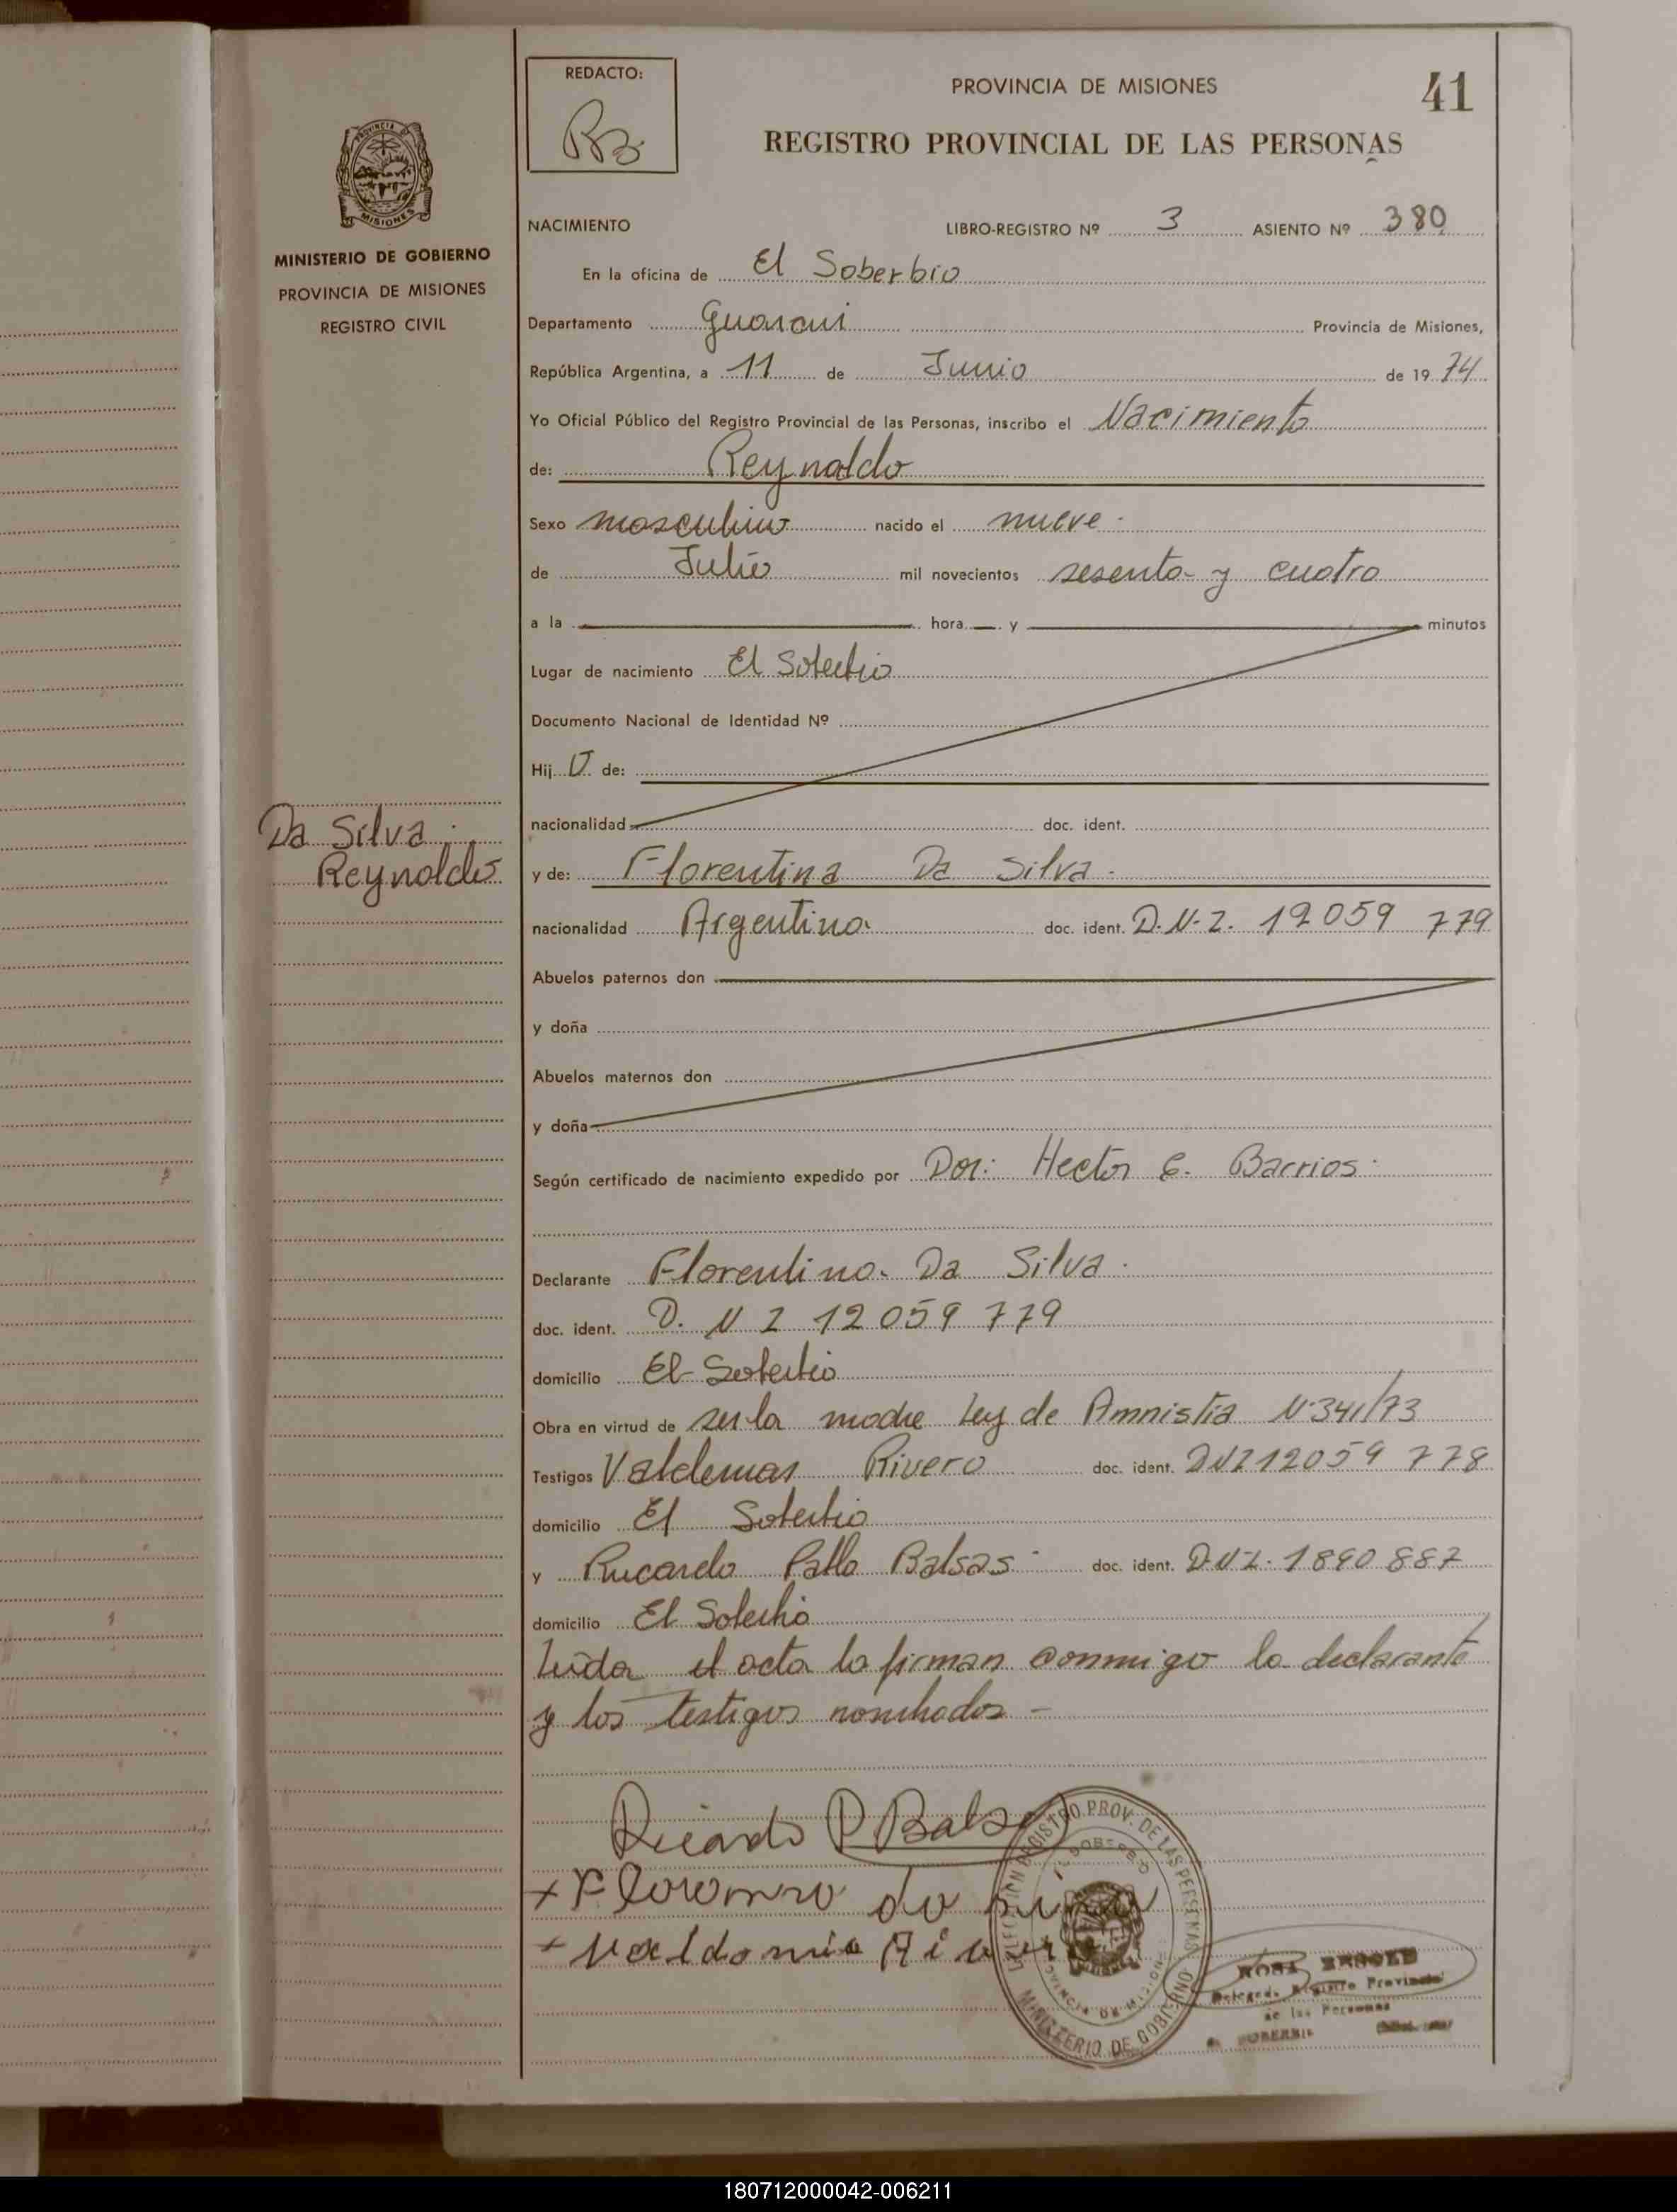 REDACTO:
PROVINCIA DE MISIONES
41
REGISTRO PROVINCIAL DE LAS PERSONAS
PROVINCIA DE
MISIONES
MINISTERIO DE GOBIERNO
PROVINCIA DE MISIONES
REGISTRO CIVIL
NACIMIENTO LIBRO-REGISTRO Nº 3 ASIENTO Nº 380
En la oficina de El Soberbio
Departamento Guarani Provincia de Misiones,
República Argentina, a 11 de Junio de 1974
Yo Oficial Público del Registro Provincial de las Personas, inscribo el Nacimiento
de: Reynaldo
Sexo masculino nacido el nueve
de Julio mil novecientos sesenta y cuatro
a la hora y minutos
Lugar de nacimiento El Soberbio
Documento Nacional de Identidad Nº
Hij O de:
nacionalidad doc. ident.
Da Silva
Reynoldo
y de: Florentina Da Silva.
nacionalidad Argentina doc. ident. D.N.I. 12059 779
Abuelos paternos don
y doña
Abuelos maternos don
y doña
Según certificado de nacimiento expedido por Dor: Hector E. Barrios
Declarante Florentina Da Silva.
doc. ident. D. N I 12 059 779
domicilio El Soberbio
Obra en virtud de ser la madre Ley de Amnistia N·341/73
Testigos Valdemar Rivero doc. ident. DNI 12059 778
domicilio El Soberbio
y Ricardo Pablo Balsas doc. ident. D.N.I. 1890 887
domicilio El Soberbio
Leida el acta la firman conmigo la declarante
y los testigos nombados -
Ricardo P Balsa
REGISTRO PROV. DE LAS PERSONAS
MINISTERIO DE GOBIERNO
Registro Provincial
de las Personas
180712000042-006211